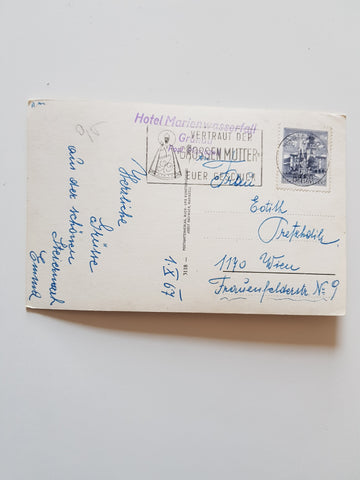 Hotel Marienwasserfall
VERTRAUT DER
GROSSEN MUTTER
EUER GESCHICK
Herzliche
Grüsse
aus der schönen
Steiermark
1.X.67
3118
Frau
Edith
1170 Wien
Frauenfelderstr. No 9